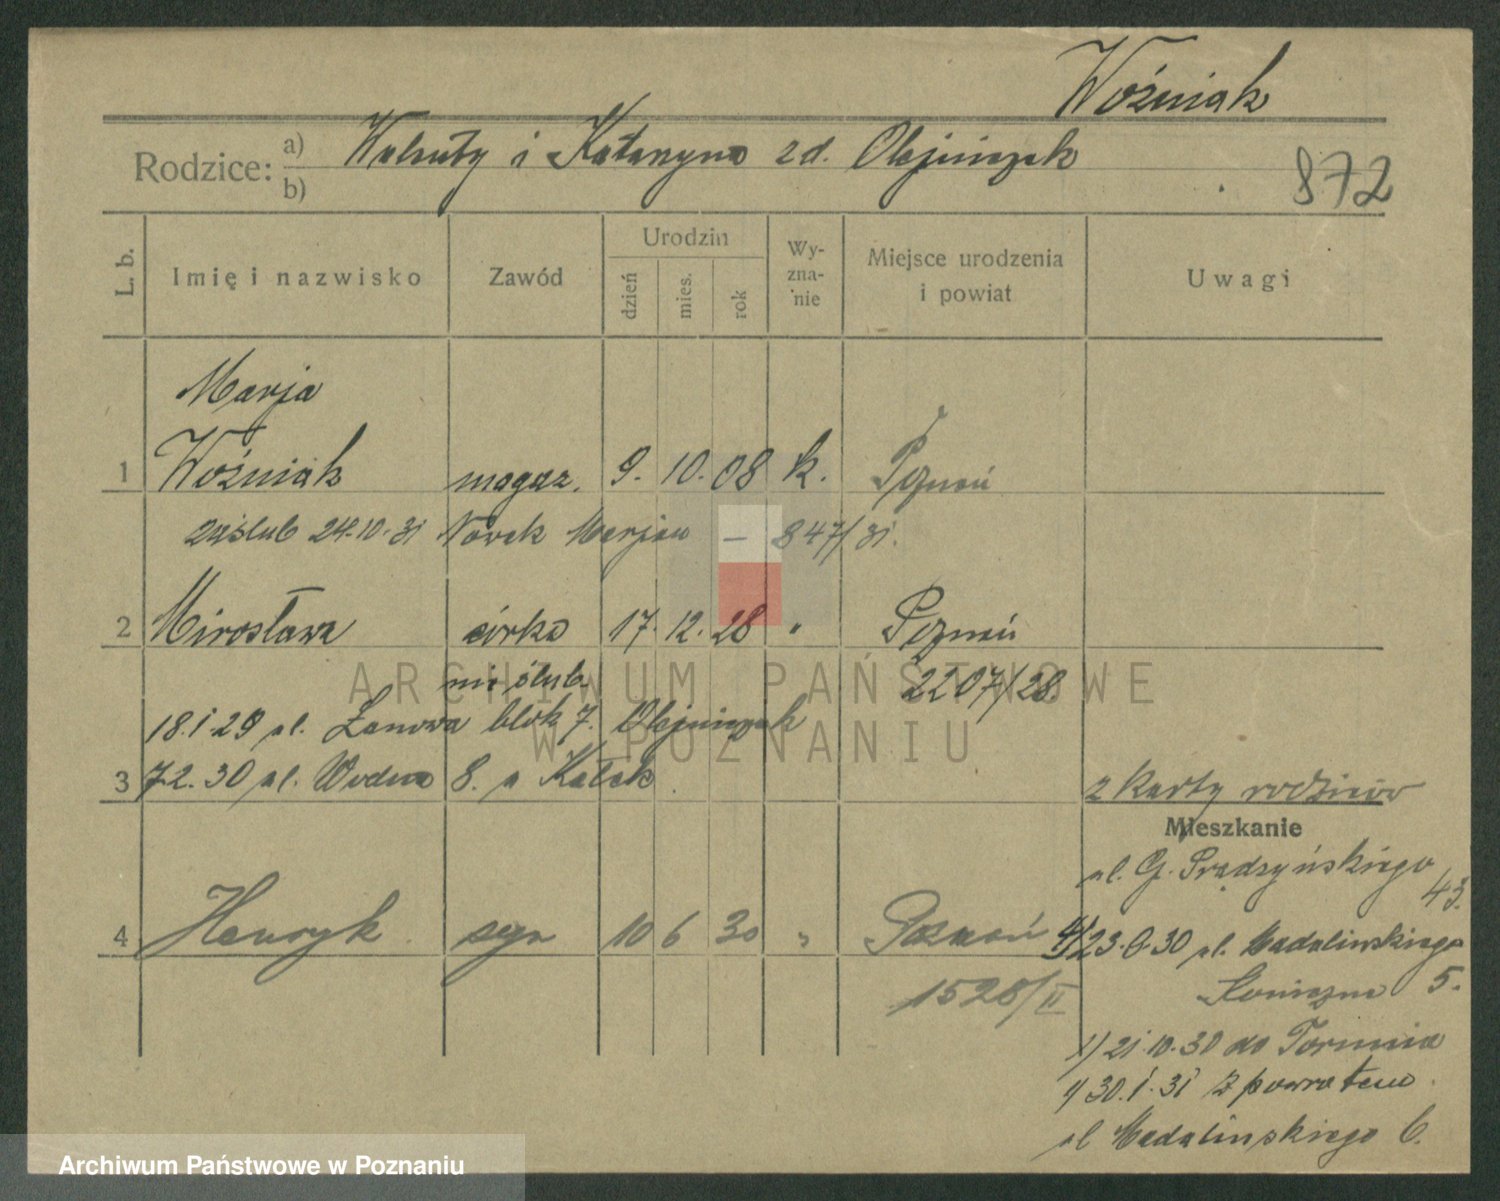 Woźniak
Rodzice: a) Walenty i Katarzyna zd. Olejniczak
b)
872
L. b. Imię i nazwisko Zawód Urodzin dzień mies. rok Wy-zna-nie Miejsce urodzenia i powiat Uwagi
Marja
1 Woźniak magaz. 9. 10. 08 k. Poznań
zaślub 24.10.31 Nowak Marjan – 847/31.
2 Mirosława córka 17. 12. 28 " Poznań
nieślub. 2207/28
18.1.29 ul. Łanowa blok 7. Olejniczak
3 7.2.30 ul. Wodna 8. u Kałek
z karty rodziców
Mieszkanie
ul. G. Prądzyńskiego
43.
4 Henryk syn 10 6 30 " Poznań
1528/II
23.6.30 ul. Madalińskiego
5.
1/ 21.10.30 do Torunia
1/ 30.1.31 z powrotem
ul Madalińskiego 6.
ARCHIWUM PAŃSTWOWE
W POZNANIU
Archiwum Państwowe w Poznaniu